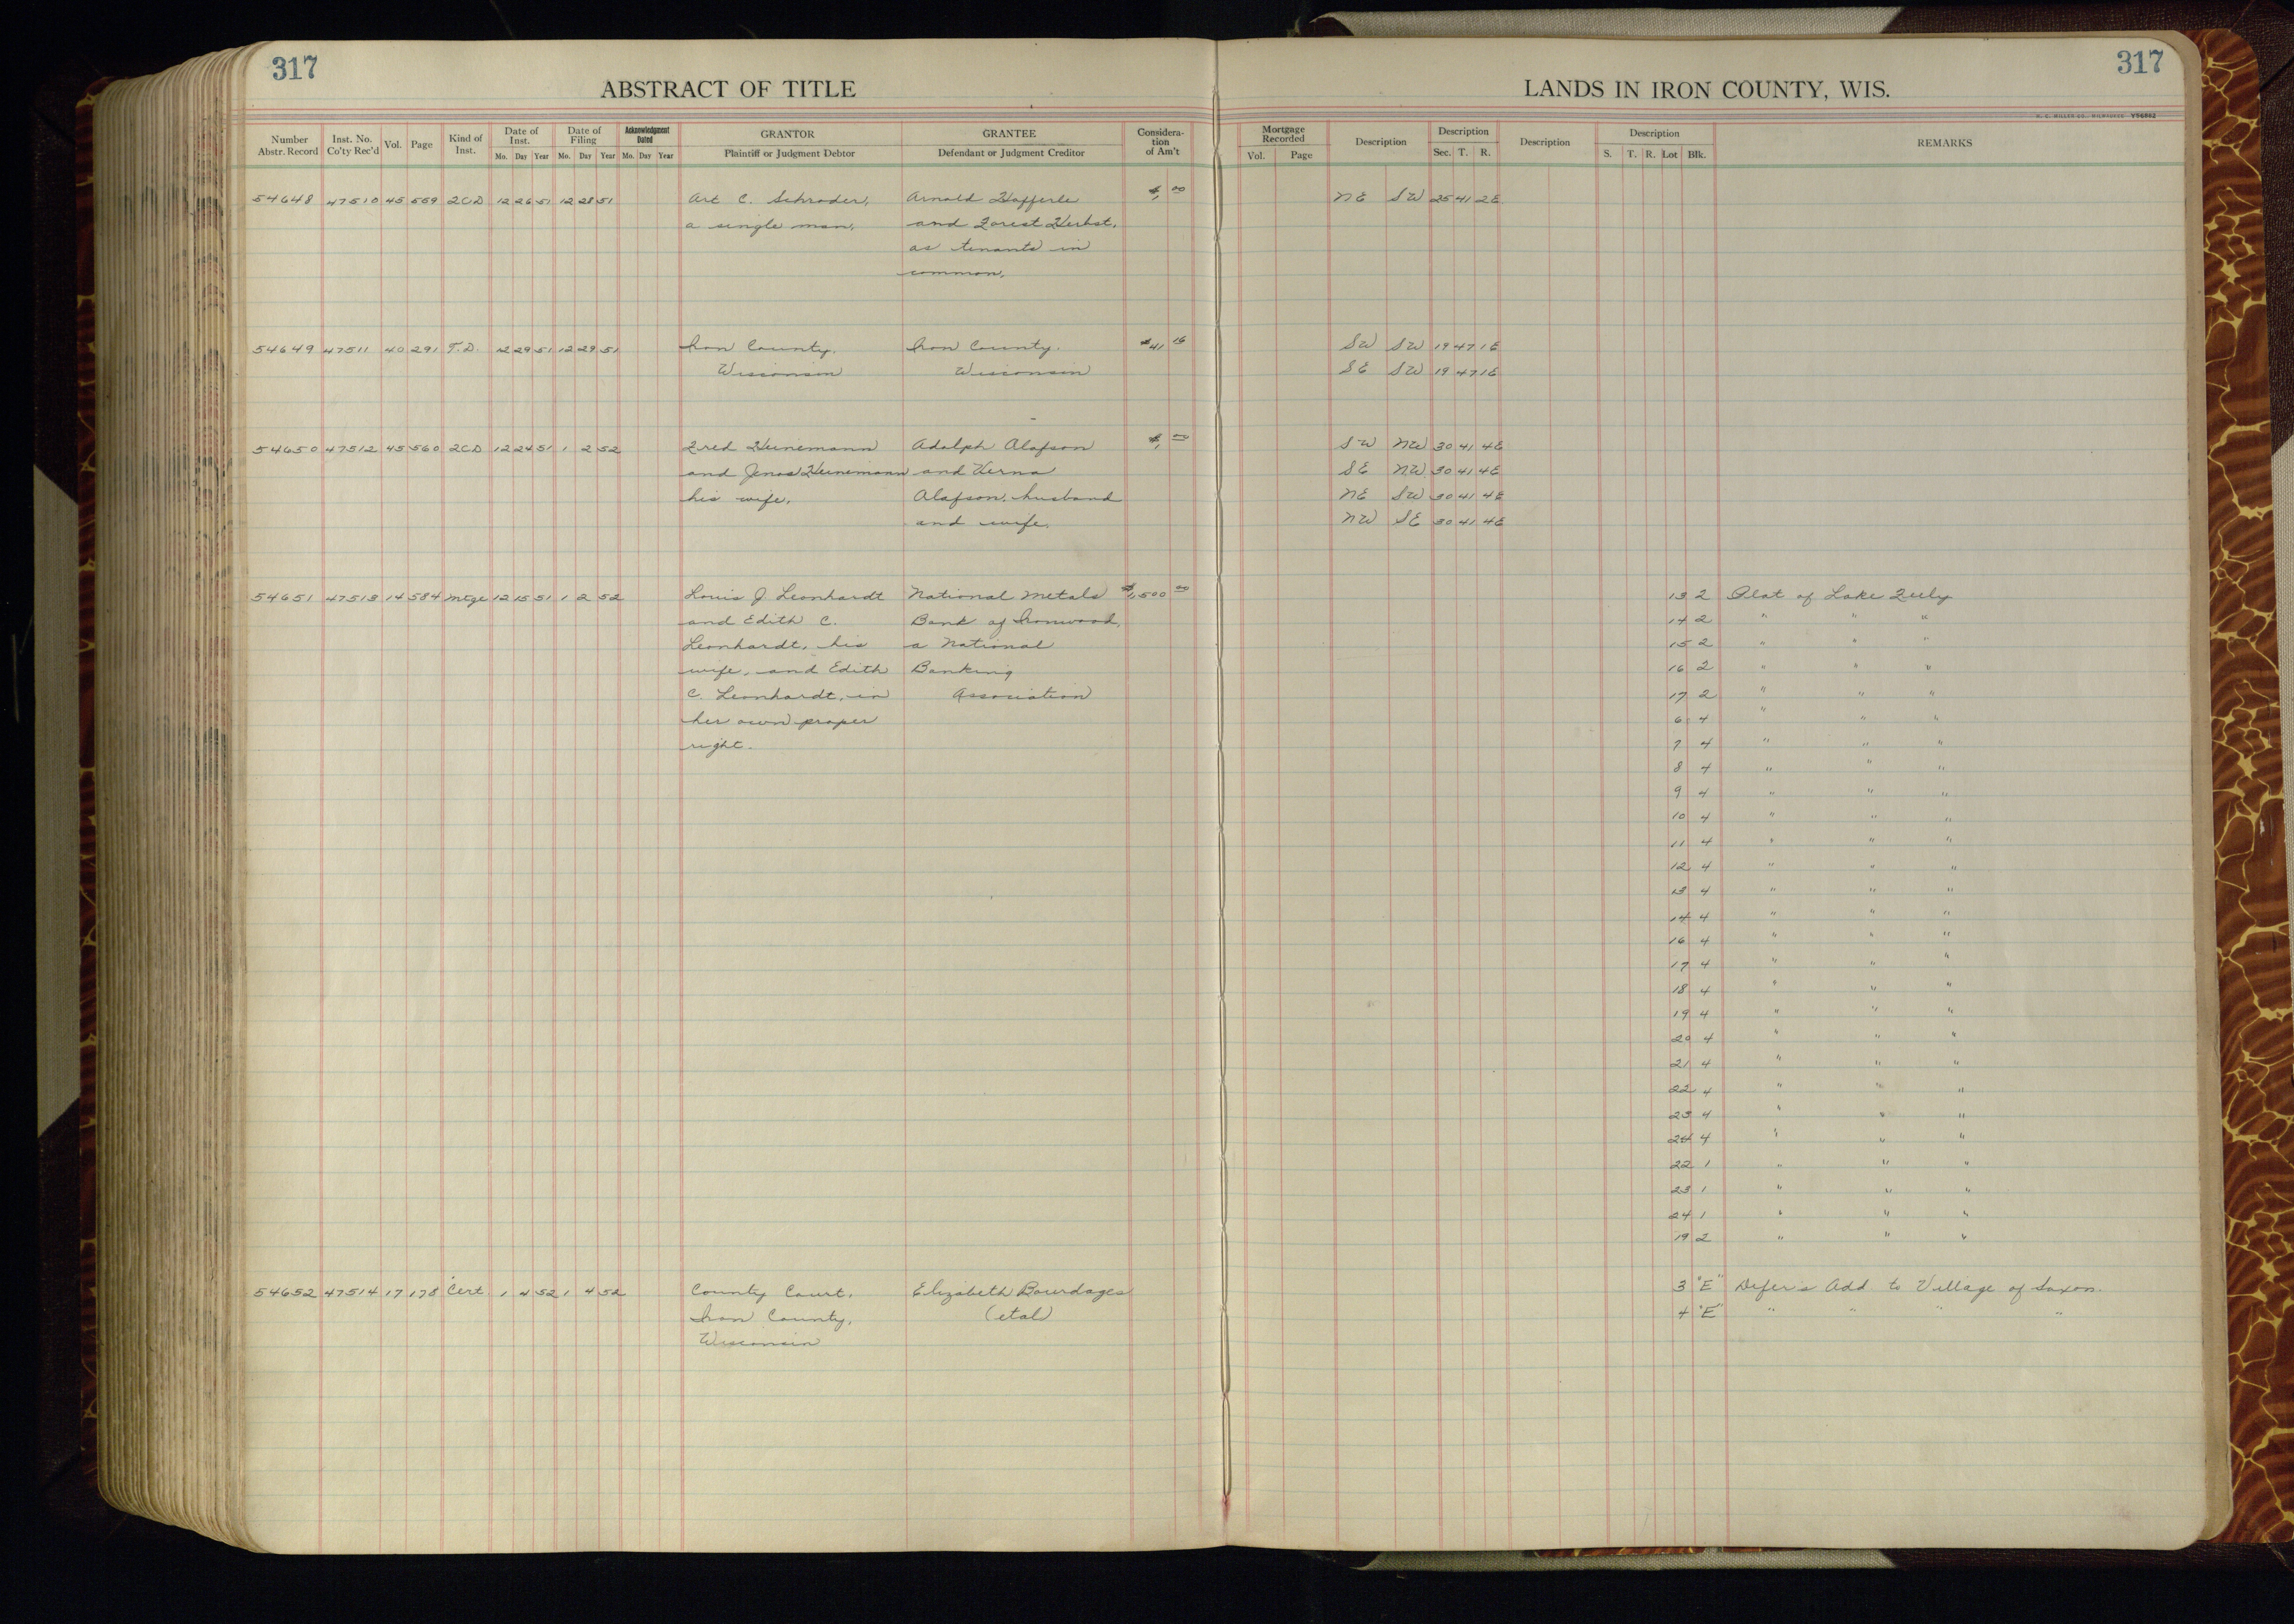 317
317
ABSTRACT OF TITLE
LANDS IN IRON COUNTY, WIS.
Number Abstr. Record Inst. No. Co'ty Rec'd Vol. Page Kind of Inst. Date of Inst. Mo. Day Year Date of Filing Mo. Day Year Acknowledgment Dated Mo. Day Year GRANTOR Plaintiff or Judgment Debtor GRANTEE Defendant or Judgment Creditor Considera-tion of Am't Mortgage Recorded Vol. Page Description Description Sec. T. R. Description Description S. T. R. Lot Blk. REMARKS
54648 47510 45 559 2CD 12 26 51 12 28 51 Art C. Schroder, Arnold $1, 00 NE SW 25 41 2E
a single man, and Forest Herbst,
as tenants in
common,
54649 47511 40 291 T.D. 12 29 51 12 29 51 Iron County, Iron County, $41 16 SW SW 19 47 1E
Wisconsin Wisconsin SE SW 19 47 1E
54650 47512 45 560 2CD 12 24 51 1 2 52 Fred Heinemann Adolph Alafson $1, 00 SW NW 30 41 4E
and Heinemann and Verna SE NW 30 41 4E
his wife, Alafson, husband NE SW 30 41 4E
and wife. NW SE 30 41 4E
54651 47513 14 584 Mtge 12 15 51 1 2 52 Louis J Leonhardt National Metals $1,500 00 13 2 Plat of Lake
and Edith C. Bank of Ironwood, 14 2 " " "
Leonhardt, his a National 15 2 " " "
wife, and Edith Banking 16 2 " " "
C. Leonhardt, in Association 17 2 " " "
her own proper 6 4 " " "
right. 7 4 " " "
8 4 " " "
9 4 " " "
10 4 " " "
11 4 " " "
12 4 " " "
13 4 " " "
14 4 " " "
16 4 " " "
17 4 " " "
18 4 " " "
19 4 " " "
20 4 " " "
21 4 " " "
22 4 " " "
23 4 " " "
24 4 " " "
22 1 " " "
23 1 " " "
24 1 " " "
19 2 " " "
54652 47514 17 178 Cert. 1 4 52 1 4 52 County Court, Elizabeth Bourdages 3 "E" Defer's Add to Village of Saxon.
Iron County, (etal) 4 "E" " " " "
Wisconsin